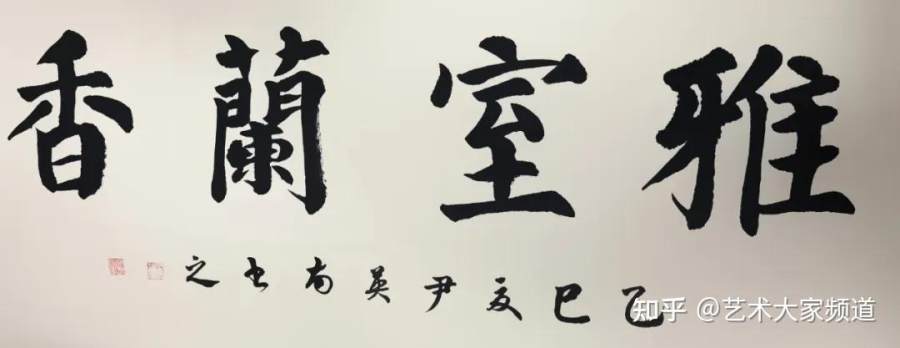 雅室蘭香
乙巳夏尹英南书之
知乎 @艺术大家频道